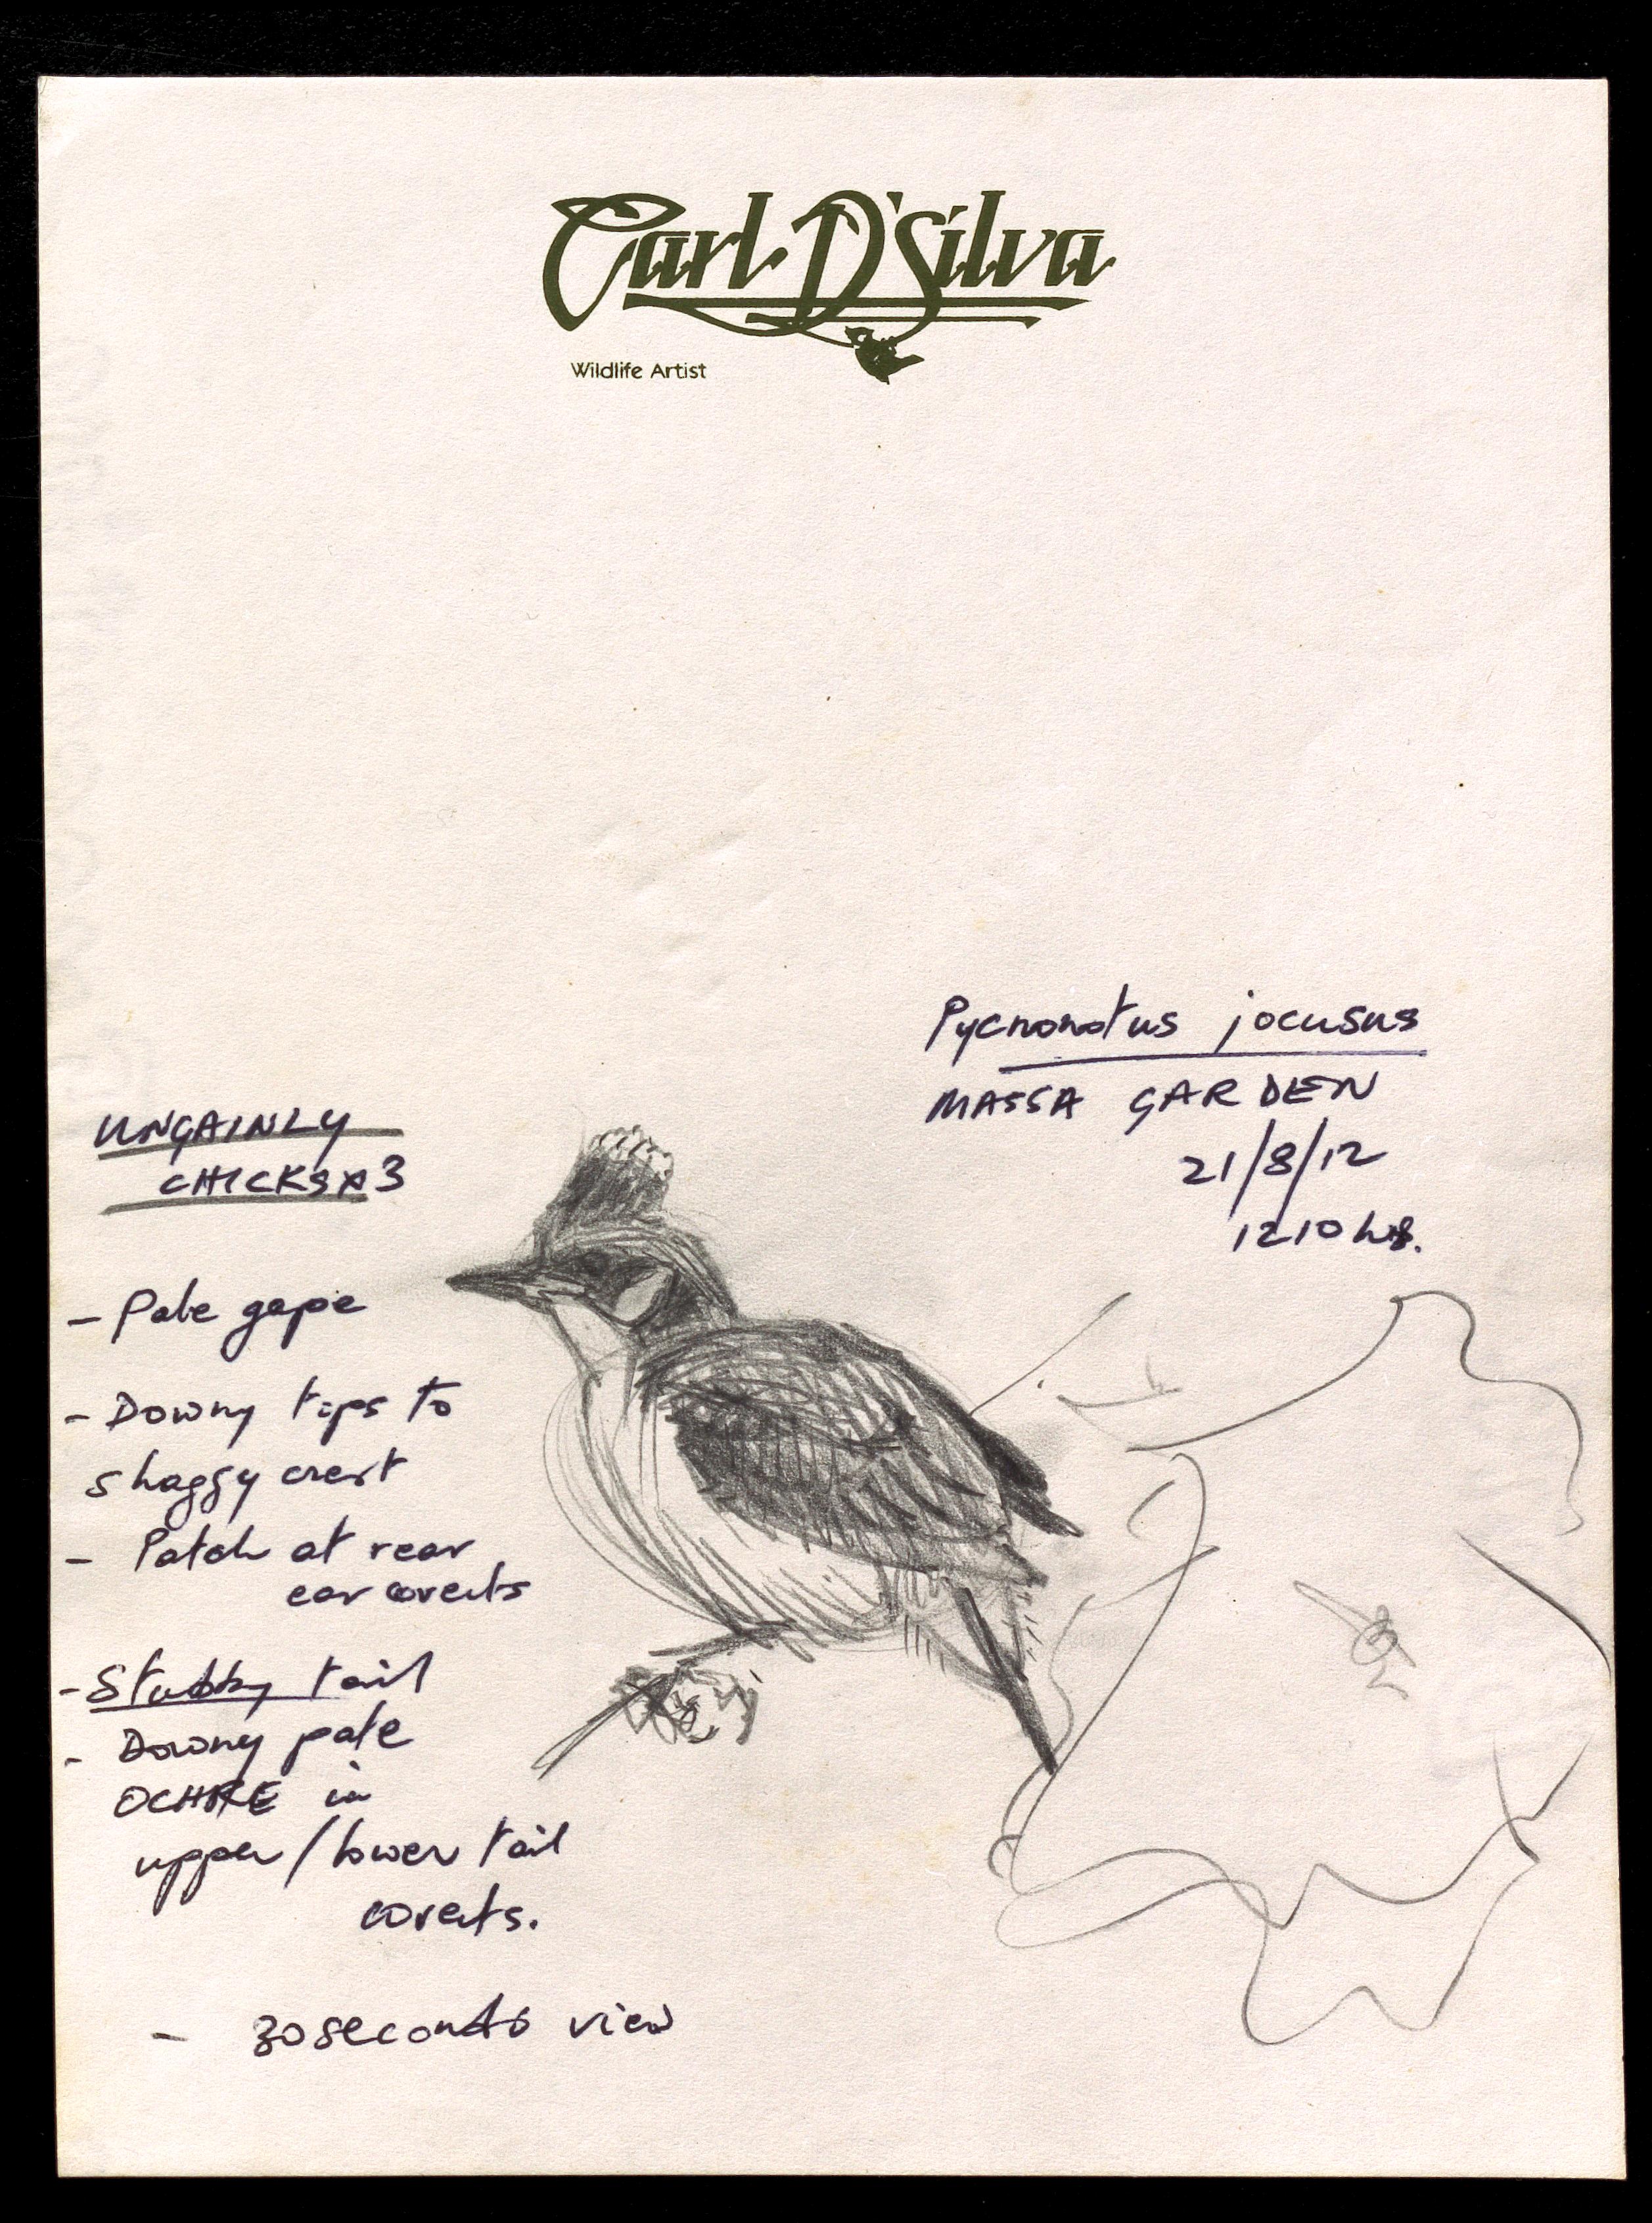 Carl D'Silva
Wildlife Artist
Pycnonotus jocusus
MASSA GARDEN
21/8/12
1210 hrs.
UNGAINLY
CHICKS x 3
- Pale gape
- Downy tips to
shaggy crest
- Patch at rear
ear coverts
- Stubby tail
- Downy pale
OCHRE in
upper/lower tail
coverts.
- 30 seconds view